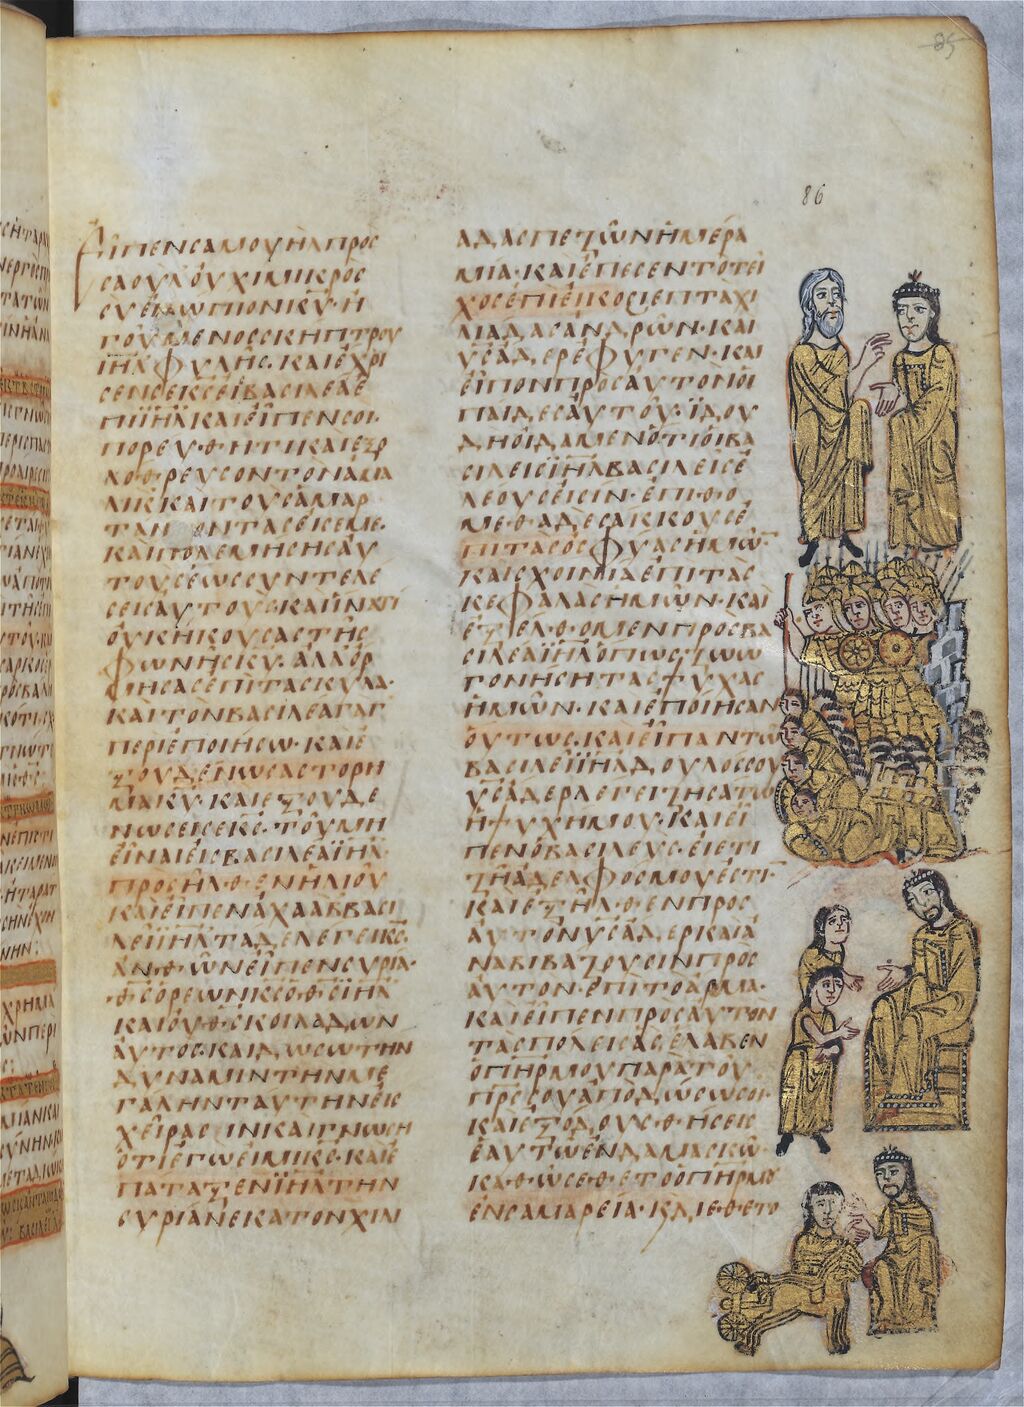 85
86
ΕΙΠΕΝ ΣΑΜΟΥΗΛ ΠΡΟΣ
ΣΑΟΥΛ ΟΥΧΙ ΜΙΚΡΟΣ
ΣΥ ΕΝΩΠΙΟΝ ΚΥ Η
ΓΟΥΜΕΝΟΣ ΣΚΗΠΤΡΟΥ
ΙΗΛ ΦΥΛΗΣ· ΚΑΙ ΕΧΡΙ
ΣΕΝ ΣΕ ΚΣ ΕΙΣ ΒΑΣΙΛΕΑ Ε
ΠΙ ΙΗΛ ΚΑΙ ΕΙΠΕΝ ΣΟΙ·
ΠΟΡΕΥΘΗΤΙ ΚΑΙ ΕΞΟ
ΛΟΘΡΕΥΣΟΝ ΤΟΝ ΑΜΑ
ΛΗΚ ΚΑΙ ΤΟΥΣ ΑΜΑΡ
ΤΑΝΟΝΤΑΣ ΕΙΣ ΕΜΕ·
ΚΑΙ ΠΟΛΕΜΗΣΗΣ ΑΥ
ΤΟΥΣ ΕΩΣ ΣΥΝΤΕΛΕ
ΣΕΙΣ ΑΥΤΟΥΣ ΚΑΙ ΙΝΑ ΤΙ
ΟΥΚ ΗΚΟΥΣΑΣ ΤΗΣ
ΦΩΝΗΣ ΚΥ· ΑΛΛ ΟΡ
ΜΗΣΑΣ ΕΠΙ ΤΑ ΣΚΥΛΑ·
ΚΑΙ ΤΟΝ ΒΑΣΙΛΕΑ ΑΓΑΓ
ΠΕΡΙΕΠΟΙΗΣΩ· ΚΑΙ Ε
ΞΟΥΔΕΝΩΣΑΣ ΤΟ ΡΗ
ΜΑ ΚΥ· ΚΑΙ ΕΞΟΥΔΕ
ΝΩΣΕΙ ΣΕ ΚΣ· ΤΟΥ ΜΗ
ΕΙΝΑΙ ΕΙΣ ΒΑΣΙΛΕΑ ΙΗΛ·
ΠΡΟΣΗΛΘΕΝ ΗΛΙΟΥ
ΚΑΙ ΕΙΠΕΝ ΑΧΑΑΒ ΒΑΣΙ
ΛΕΙ ΙΗΛ ΤΑΔΕ ΛΕΓΕΙ ΚΣ·
ΑΝΘ ΩΝ ΕΙΠΕΝ ΣΥΡΙΑ·
ΘΣ ΟΡΕΩΝ ΚΣ Ο ΘΣ ΙΗΛ
ΚΑΙ ΟΥ ΘΣ ΚΟΙΛΑΔΩΝ
ΑΥΤΟΣ· ΚΑΙ ΔΩΣΩ ΤΗΝ
ΔΥΝΑΜΙΝ ΤΗΝ ΜΕ
ΓΑΛΗΝ ΤΑΥΤΗΝ ΕΙΣ
ΧΕΙΡΑΣ ΙΝ ΚΑΙ ΓΝΩΣΗ
ΟΤΙ ΕΓΩ ΕΙΜΙ ΚΣ· ΚΑΙ Ε
ΠΑΤΑΞΕΝ ΙΗΛ ΤΗΝ
ΣΥΡΙΑΝ ΕΚΑΤΟΝ ΧΙΛΙ
ΑΔΑΣ ΠΕΖΩΝ ΗΜΕΡΑ
ΜΙΑ· ΚΑΙ ΕΠΕΣΕΝ ΤΟ ΤΕΙ
ΧΟΣ ΕΠΙ ΕΙΚΟΣΙ ΕΠΤΑ ΧΙ
ΛΙΑΔΑΣ ΑΝΔΡΩΝ· ΚΑΙ
ΥΣ ΑΔΕΡ ΕΦΥΓΕΝ· ΚΑΙ
ΕΙΠΟΝ ΠΡΟΣ ΑΥΤΟΝ ΟΙ
ΠΑΙΔΕΣ ΑΥΤΟΥ· ΙΔΟΥ
ΔΗ ΟΙΔΑΜΕΝ ΟΤΙ ΟΙ ΒΑ
ΣΙΛΕΙΣ ΙΗΛ ΒΑΣΙΛΕΙΣ Ε
ΛΕΟΥΣ ΕΙΣΙΝ· ΕΠΙΘΟ
ΜΕΘΑ ΔΕ ΣΑΚΚΟΥΣ Ε
ΠΙ ΤΑΣ ΟΣΦΥΑΣ ΗΜΩ
ΚΑΙ ΣΧΟΙΝΙΑ ΕΠΙ ΤΑΣ
ΚΕΦΑΛΑΣ ΗΜΩΝ· ΚΑΙ
ΕΞΕΛΘΟΜΕΝ ΠΡΟΣ ΒΑ
ΣΙΛΕΑ ΙΗΛ ΟΠΩΣ ΖΩΩ
ΓΟΝΗΣΗ ΤΑΣ ΨΥΧΑΣ
ΗΜΩΝ· ΚΑΙ ΕΠΟΙΗΣΑΝ
ΟΥΤΩΣ· ΚΑΙ ΕΙΠΑΝ ΤΩ
ΒΑΣΙΛΕΙ ΙΗΛ ΔΟΥΛΟΣ ΣΟΥ
ΥΣ ΑΔΕΡ ΛΕΓΕΙ ΖΗΣΑΤΩ
Η ΨΥΧΗ ΜΟΥ· ΚΑΙ ΕΙ
ΠΕΝ Ο ΒΑΣΙΛΕΥΣ· ΕΙ ΕΤΙ
ΖΗ ΑΔΕΛΦΟΣ ΜΟΥ ΕΣΤΙ·
ΚΑΙ ΕΞΗΛΘΕΝ ΠΡΟΣ
ΑΥΤΟΝ ΥΣ ΑΔΕΡ ΚΑΙ Α
ΝΑΒΙΒΑΖΟΥΣΙΝ ΠΡΟΣ
ΑΥΤΟΝ· ΕΠΙ ΤΟ ΑΡΜΑ·
ΚΑΙ ΕΙΠΕΝ ΠΡΟΣ ΑΥΤΟΝ
ΤΑΣ ΠΟΛΕΙΣ ΑΣ ΕΛΑΒΕΝ
Ο ΠΗΡ ΜΟΥ ΠΑΡΑ ΤΟΥ
ΠΡΣ ΣΟΥ ΑΠΟΔΩΣΩ ΣΟΙ·
ΚΑΙ ΕΞΟΔΟΥΣ ΘΗΣΕΙΣ
ΕΑΥΤΩ ΕΝ ΔΑΜΑΣΚΩ·
ΚΑΘΩΣ ΕΘΕΤΟ Ο ΠΗΡ ΜΟΥ
ΕΝ ΣΑΜΑΡΕΙΑ· Κ ΔΙΕΘΕΤΟ